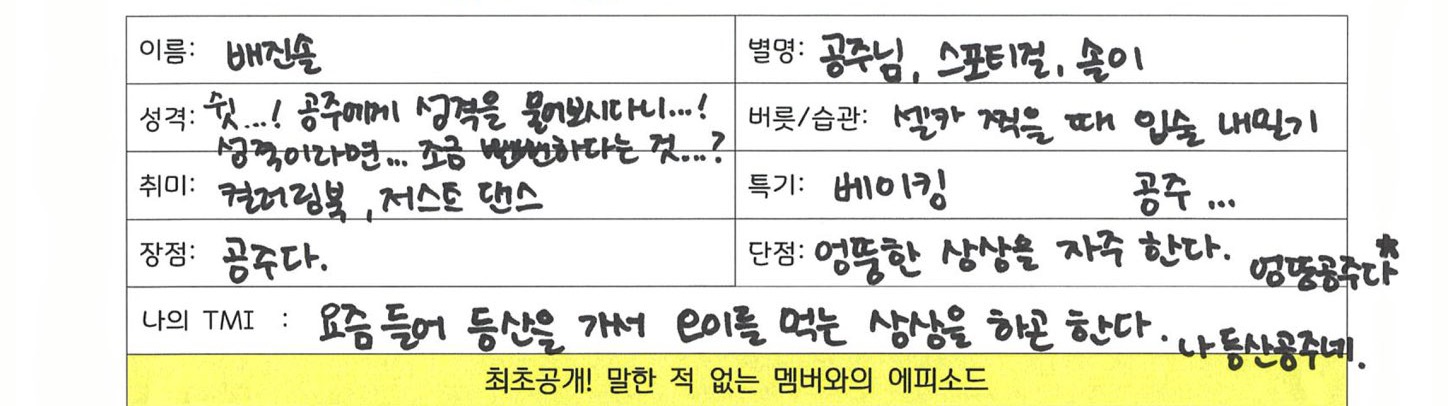 이름: 배진솔
별명: 공주님, 스포티걸, 솔이
성격: 쉿...! 공주에게 성격을 물어보시다니...!
성격이라면... 조금 뻔뻔하다는 것...?
버릇/습관: 셀카 찍을 때 입술 내밀기
취미: 컬러링북, 저스트 댄스
특기: 베이킹 공주...
장점: 공주다.
단점: 엉뚱한 상상을 자주 한다. 엉뚱공주다*
나의 TMI : 요즘 들어 등산을 가서 오이를 먹는 상상을 하곤 한다. 나 등산공주네.
최초공개! 말한 적 없는 멤버와의 에피소드